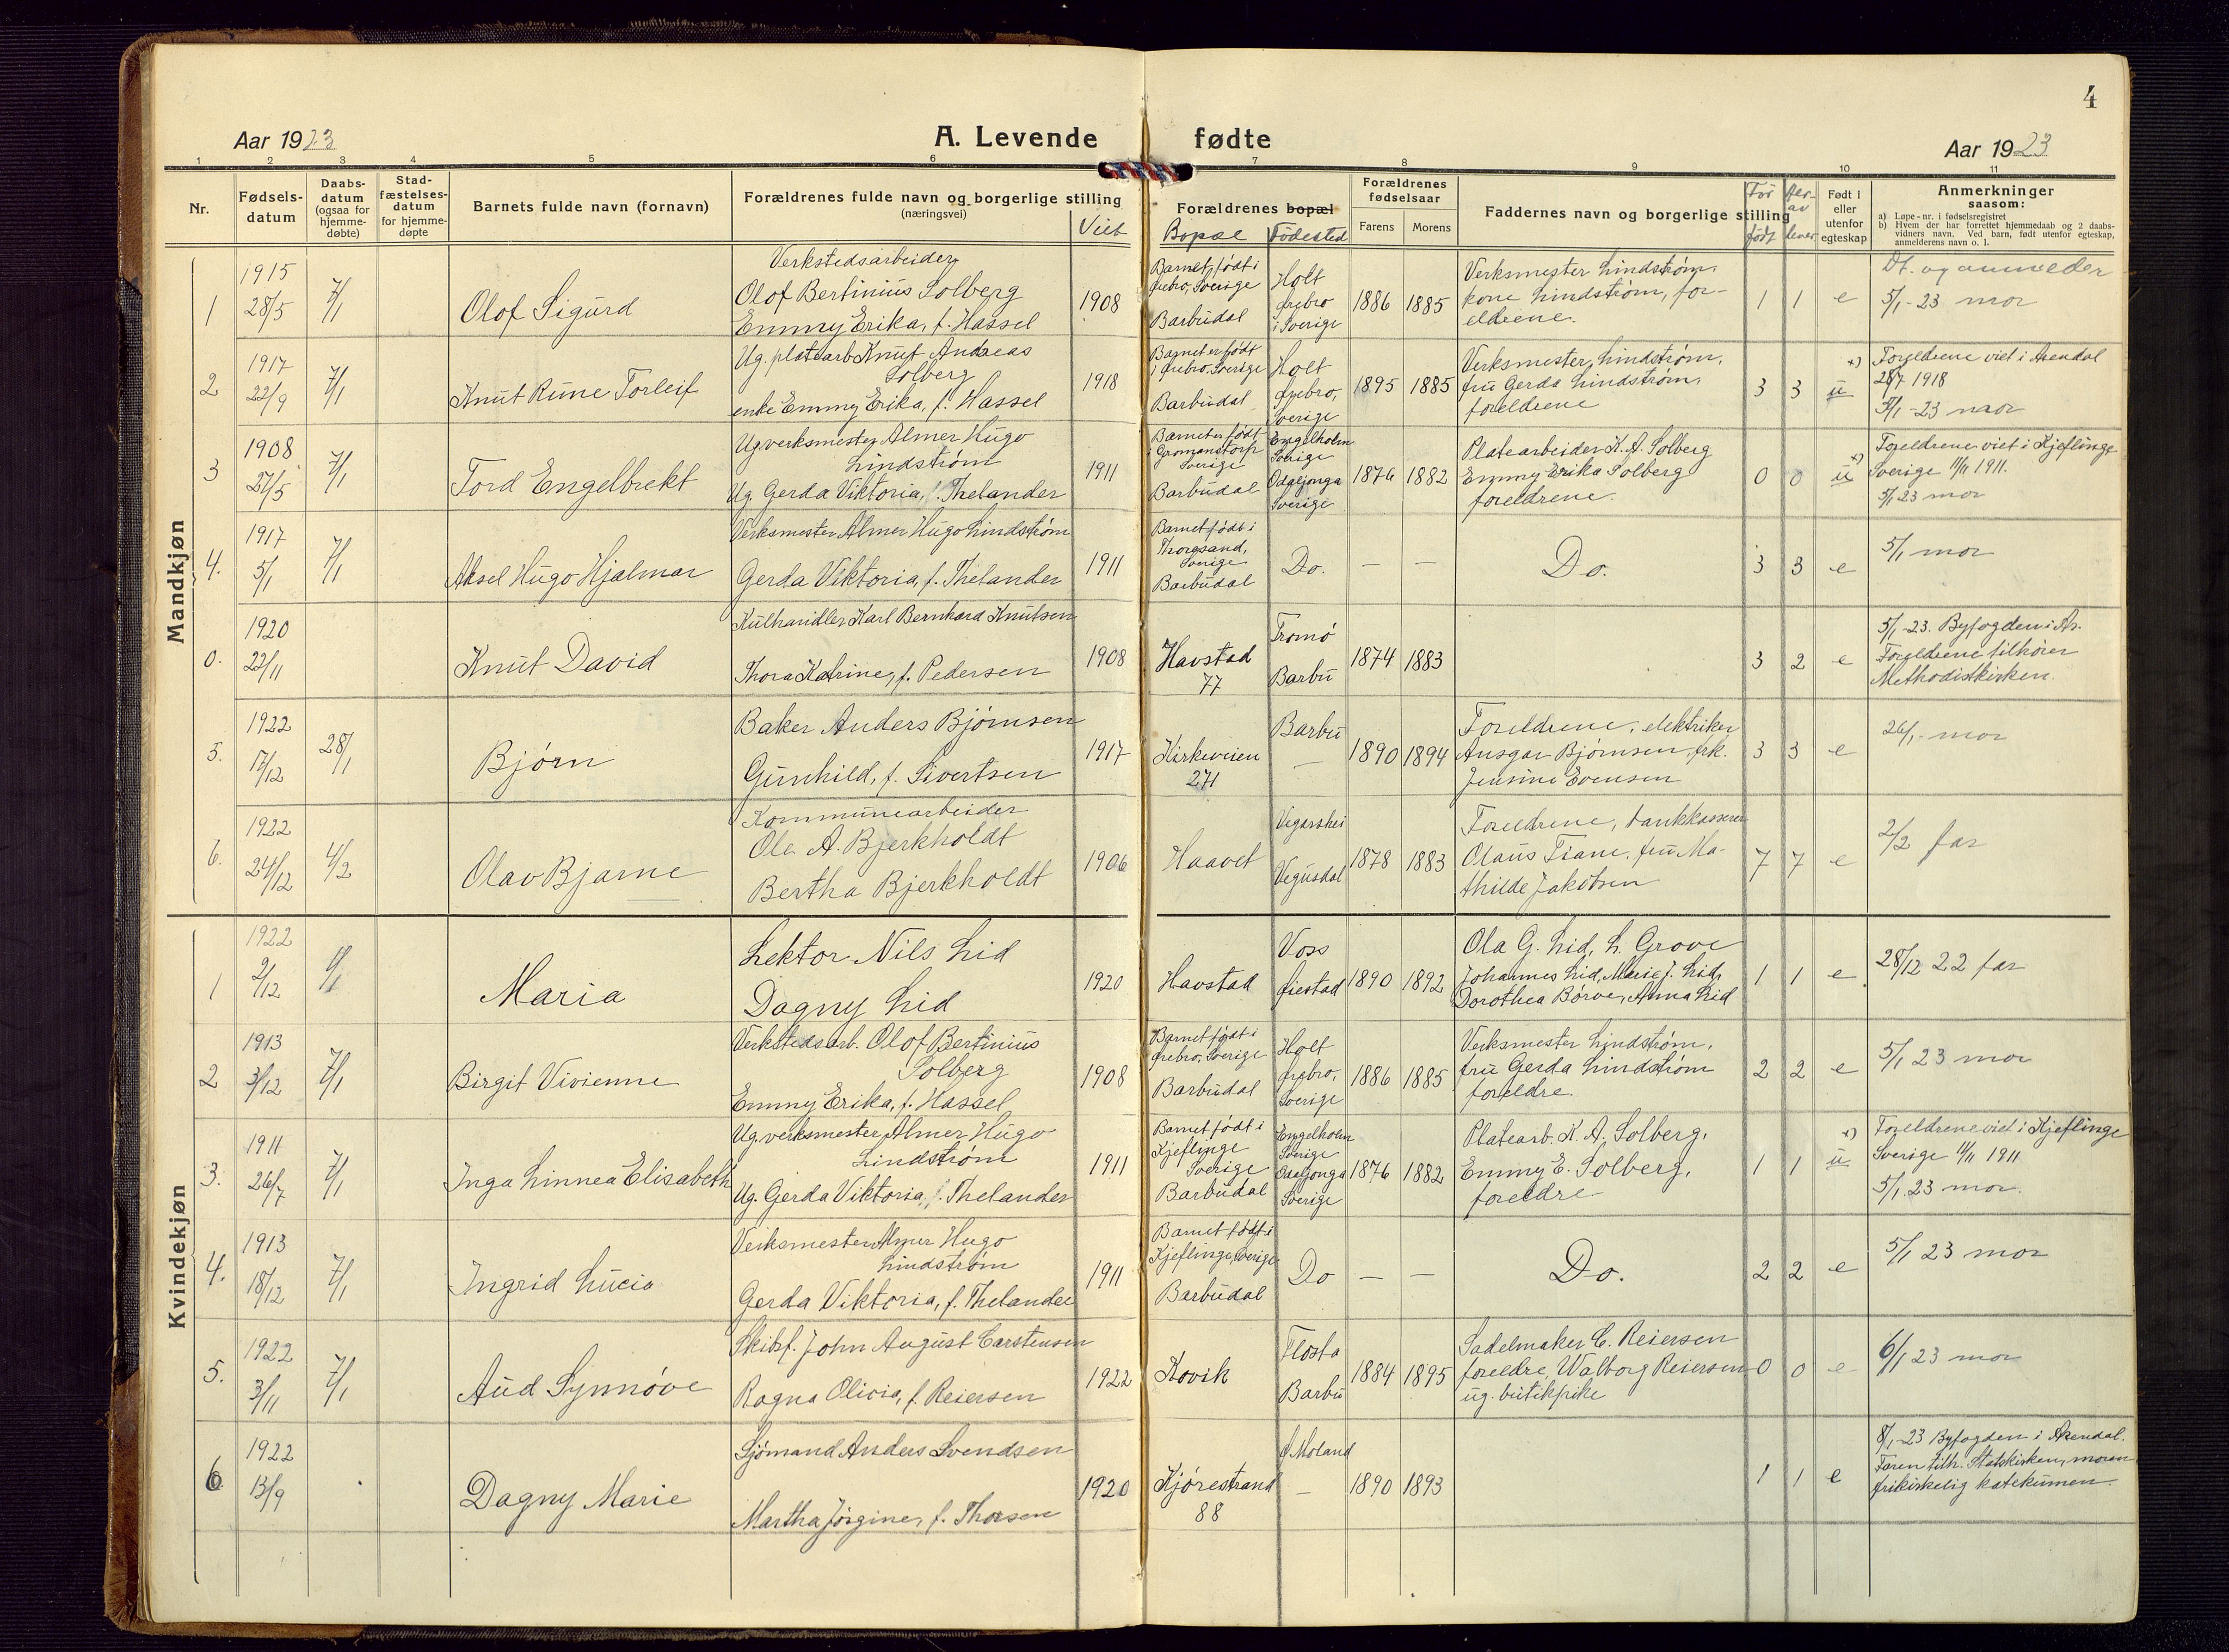 4
Aar 1923
A. Levende fødte
Aar 1923
1 2 3 4 5 6 7 8 9 10 11
Nr.
Fødsels-
datum
Daabs-
datum
(ogsaa for
hjemme-
døbte)
Stad-
fæstelses-
datum
for hjemme-
døpte
Barnets fulde navn (fornavn)
Forældrenes fulde navn og borgerlige stilling
(næringsvei)
Viet
Forældrenes bopæl
Bopæl Fødested
Forældrenes
fødselsaar
Farens Morens
Faddernes navn og borgerlige stilling
Før
født
Her-
av
lever
Født i
eller
utenfor
egteskap
Anmerkninger
saasom:
a) Løpe-nr. i fødselsregistret
b) Hvem der har forrettet hjemmedaab og 2 daabs-
vidners navn. Ved barn, født utenfor egteskap,
anmelderens navn o. l.
Mandkjøn
1
1915
28/5
7/1
Olof Sigurd
Verkstedsarbeider
Olof Bertinius Solberg
Emmy Erika, f. Hassel
1908
Barnet født i
Ørebro, Sverige
Barbudal
Holt
Ørebro
i Sverige
1886 1885
Verksmester Lindstrøm,
kone Lindstrøm, for-
eldrene.
1 1 e
Dt. og anmelder
5/1-23 mor
2
1917
22/9
7/1
Knut Rune Torleif
Ug. platearb Knut Andreas
Solberg
enke Emmy Erika, f. Hassel
1918
Barnet er født
i Ørebro, Sverige
Barbudal
Holt
Ørebro,
Sverige
1895 1885
Verksmester Lindstrøm,
fru Gerda Lindstrøm,
foreldrene
3 3 u
x) Foreldrene viet i Arendal
28/7 1918
5/1-23 mor
3
1908
27/5
7/1
Tord Engelbrekt
Ug. verksmester Almer Hugo
Lindstrøm
Ug. Gerda Viktoria, f. Thelander
1911
Barnet er født
i Gromanstorp
Sverige
Barbudal
Engelholm
Sverige
Odaljonga
Sverige
1876 1882
Platearbeider K. A. Solberg
Emmy Erika Solberg
foreldrene.
0 0 u
x) Foreldrene viet i Kjeflinge
Sverige 11/11 1911.
5/1 23 mor
4.
1917
5/1
7/1
Aksel Hugo Hjalmar
Verksmester Almer Hugo Lindstrøm
Gerda Viktoria, f. Thelander
1911
Barnet født i
Thorgsand,
Sverige
Barbudal
Do.
— —
Do.
3 3 e
5/1 mor
0.
1920
22/11
Knut David
Kulhandler Karl Bernhard Knutsen
Thora Katrine, f. Pedersen
1908
Havstad
77
Tromø
Barbu
1874 1883
3 2 e
5/1-23. Byfogden i Ar.
Foreldrene tilhører
Methodistkirken.
5.
1922
17/12
28/1
Bjørn
Baker Anders Bjørnsen
Gunhild, f. Sivertsen
1917
Kirkeveien
271
Barbu
—
1890 1894
Foreldrene, elektriker
Ansgar Bjørnsen, frk.
Jensine Evensen
3 3 e
26/1 - mor
6.
1922
24/12
4/2
Olav Bjarne
Kommunearbeider
Ole A. Bjerkholdt
Bertha Bjerkholdt
1906
Haavet
Vegarshei
Vegusdal
1878 1883
Foreldrene, bankkasserer
Olaus Tiane, fru Ma-
thilde Jakobsen
7 7 e
2/2 far
Kvindekjøn
1
1922
2/12
Maria
Lektor Nils Lid
Dagny Lid
1920
Havstad
Voss
Øiestad
1890 1892
Ola G. Lid, L. Grove
Johannes Lid, Marie J. Lid,
Dorothea Børve, Anna Lid
1 1 e
28/12 22 far
2
1913
3/12
7/1
Birgit Vivienne
Verkstedsarb. Olof Bertinius
Solberg
Emmy Erika, f. Hassel
1908
Barnet født i
Ørebro, Sverige
Barbudal
Holt
Ørebro,
Sverige
1886 1885
Verksmester Lindstrøm,
fru Gerda Lindstrøm
foreldre.
2 2 e
5/1 23 mor
3.
1911
26/7
7/1
Inga Linnea Elisabeth
Ug. verksmester Almer Hugo
Lindstrøm
Ug. Gerda Viktoria, f. Thelander
1911
Barnet født i
Kjeflinge
Sverige
Barbudal
Engelholm
Sverige
Odaljonga
Sverige
1876 1882
Platearb. K. A. Solberg,
Emmy E. Solberg,
foreldre
1 1 u
x) Foreldrene viet i Kjeflinge
Sverige 11/11 1911
5/1 23 mor.
4.
1913
18/12
7/1
Ingrid Lucia
Verksmester Almer Hugo
Lindstrøm
Gerda Viktoria, f. Thelander
1911
Barnet født i
Kjeflinge, Sverige
Barbudal
Do
— —
Do.
2 2 e
5/1 23 mor
5.
1922
3/11
7/1
Aud Synnøve
Skibsf. John August Carstensen
Ragna Olivia, f. Reiersen
1922
Flosta
Barbu
1884 1895
Sadelmaker C. Reiersen
foreldre, Walborg Reiersen
ug. butikpike
0 0 e
6/1 23 mor
6
1922
13/9
Dagny Marie
Sjømand Anders Svendsen
Martha Jørgine, f. Thorsen
1920
Kjørestrand
88
Ø. Moland
—
1890 1893
1 1 e
8/1-23 Byfogden i Arendal.
Faren tilh. Statskirken, moren
frikirkelig katekumen.